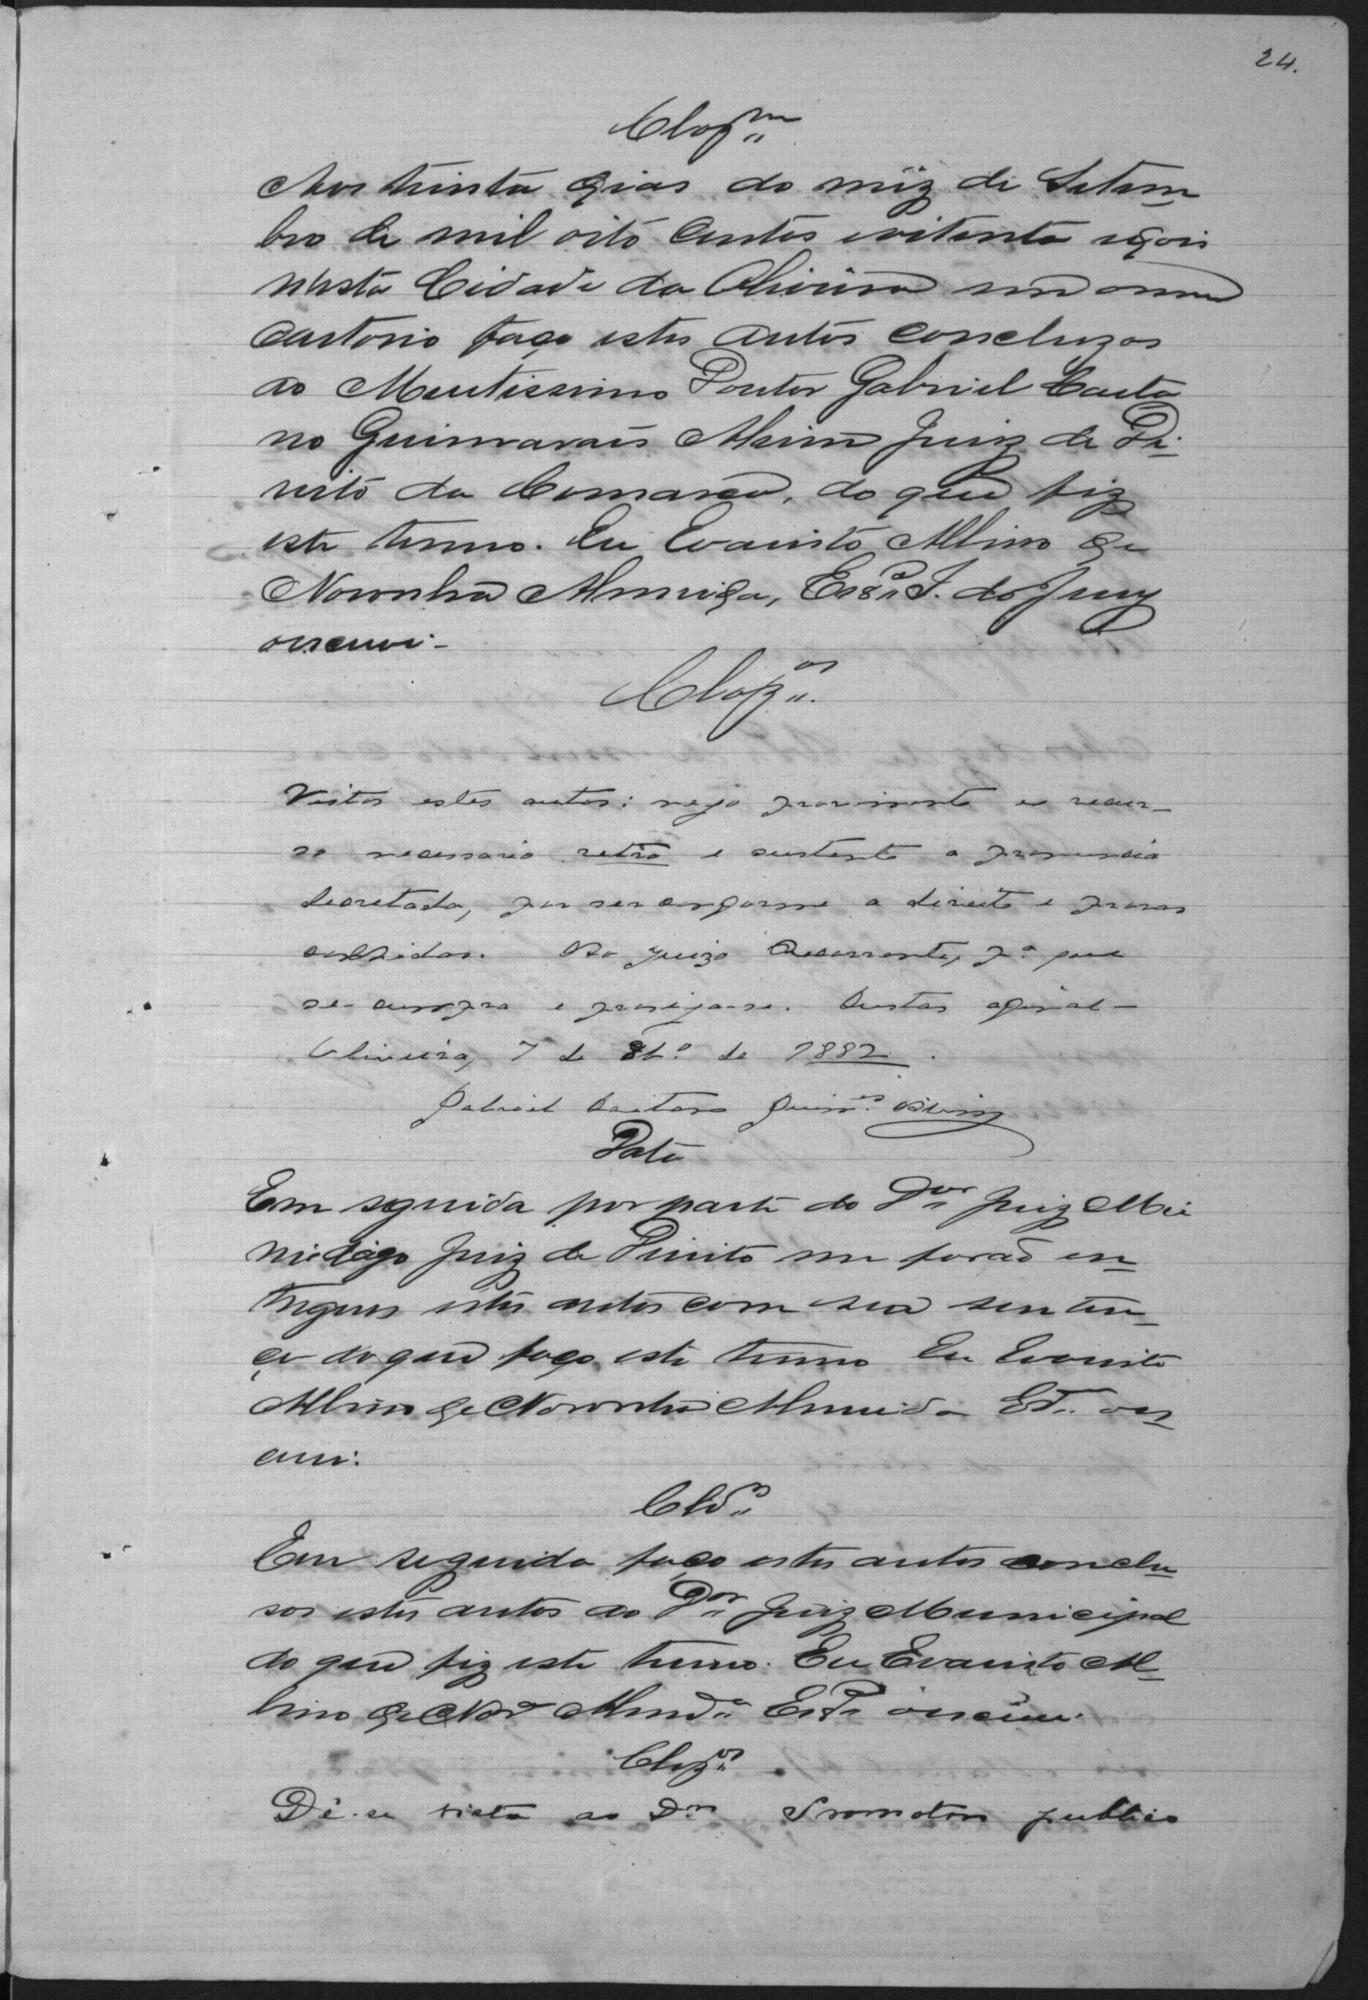 24.
Clozm
Aos trinta dias do mêz de Setem
bro de mil oito centos e oitenta e dois
nésta Cidade da Oliveira em meu
cartorio faço estes autos concluzos
ao Meritissimo Doutor Gabriel Caeta
no Guimaraeis Alvim Juiz de Di-
reito da Comarca, do que fiz
este termo. Eu Evaristo Albino de
Noronha Almeida, Esc. I. do Jury
o escrevi.
Clozos.
Vistos estes autos: nego provimento ao recur-
so necessario retro e sustento a pronuncia
decretada, por ser conforme a direito e provas
colhidas. Ao Juizo Recorrente, pa. que
se cumpra e prosiga-se. Custas afinal-
Oliveira, 7 de 8bo. de 1882.
Gabriel Caetano Guimes. Alvim
Data
Em seguida por parte do Dor Juiz Mu
nidigo Juiz de Direito me forão en
tregues estes autos com sua senten-
ça do que faço este termo Eu Evaristo
Albino de Noronha Almeida EI. o es
crevi.
Clos
Em seguida faço estes autos conclu
sos estes autos ao Dor Juiz Municipal
do que fiz este termo. Eu Evaristo Al-
bino de Nora Almda o escrevi.
Clzos
Dê-se vista ao Dr. Promotor publico